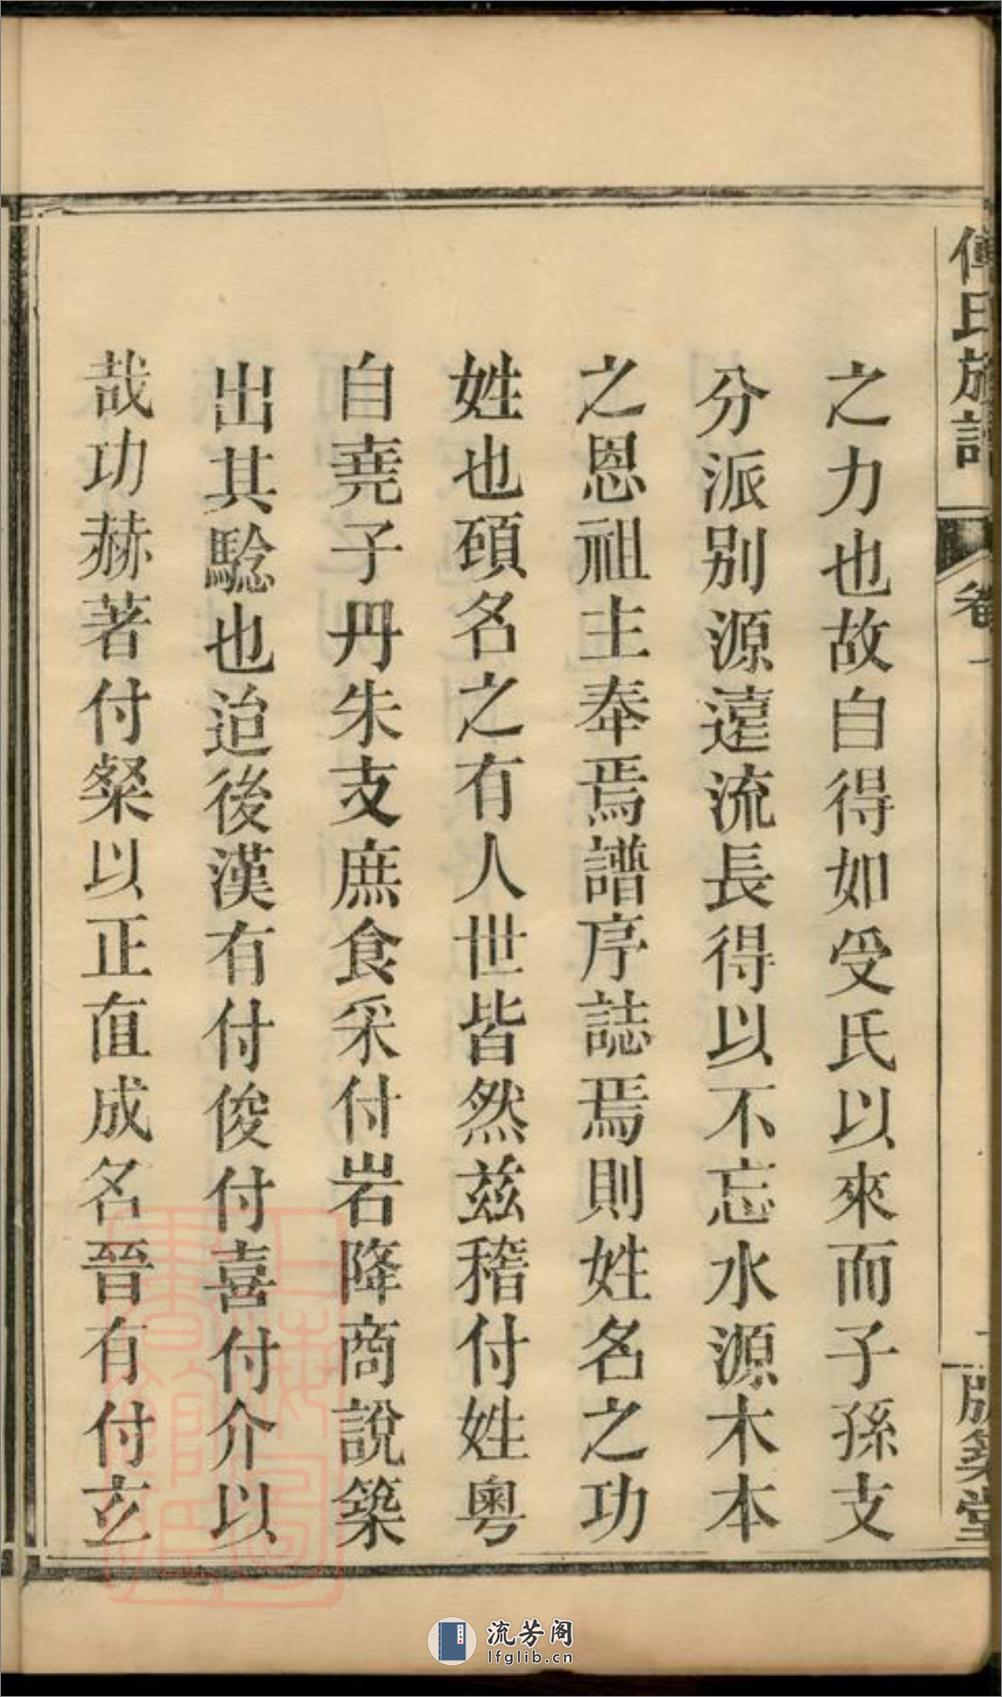 傅氏族譜
卷一
版築堂
之力也故自得如受氏以來而子孫支
分派别源遠流長得以不忘水源木本
之恩祖主奉焉譜序誌焉則姓名之功
姓也碩名之有人世皆然茲稽付姓粵
自堯子丹朱支庶食采付岩降商說築
出其騐也迨後漢有付俊付喜付介以
哉功赫著付粲以正直成名晉有付玄
上海圖書館藏
流芳阁
lfglib.cn